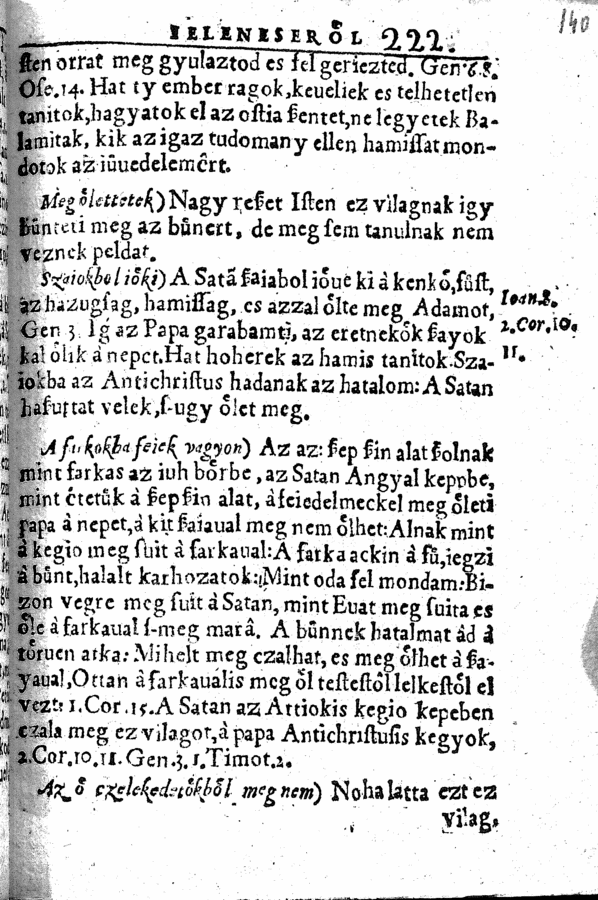 IELENESERŐL 222.
140
sten orrat meg gyulaztod es fel geriezted. Gen 6.8.
Ose.14. Hat ty ember ragok, keueliek es telhetetlen
tanitok, hagyatok el az ostia ſentet, ne legyetek Ba-
lamitak, kik az igaz tudomany ellen hamissat mon-
dotok az iüuedelemêrt.
Meg ölettetek) Nagy reſet Isten ez vilagnak igy
bünteti meg az bünert, de meg sem tanulnak nem
veznek peldat.
Szaiokbol iöki) A Satã ſaiabol iöue ki à kenkö, füst,
az hazugsag, hamissag, es azzal ölte meg Adamot,
Ioan.8.
Gen 3. Ig az Papa garabamti, az eretnekök ſayok
2.Cor.10.
kal ölik à nepet. Hat hoherek az hamis tanitok. Sza-
11.
iokba az Antichristus hadanak az hatalom: A Satan
hafuttat velek, s-ugy ölet meg.
A fukokba feiek vagyon) Az az: ſep ſin alat ſolnak
mint farkas az iuh börbe, az Satan Angyal keppbe,
mint êtetük à ſep ſin alat, à feiedelmeckel meg öleti
papa à nepet, à kit ſaiaual meg nem ölhet: Alnak mint
à kegio meg suit à farkaual: A farka ackin à fü, iegzi
à bünt, halalt karhozatok: Mint oda fel mondam: Bi-
zon vegre meg suit à Satan, mint Euat meg suita es
öle à farkaual s-meg marâ. A bünnek hatalmat àd à
töruen atka: Mihelt meg czalhat, es meg ölhet à ſa-
yaual, Ottan à farkaualis meg öl testestöl lelkestöl el
vezt: 1.Cor.15. A Satan az Attiokis kegio kepeben
czala meg ez vilagot, à papa Antichristusis kegyok,
2.Cor.10.11. Gen.3.1.Timot.2.
Az ö czelekedetökböl meg nem) Noha latta ezt ez
vilag,